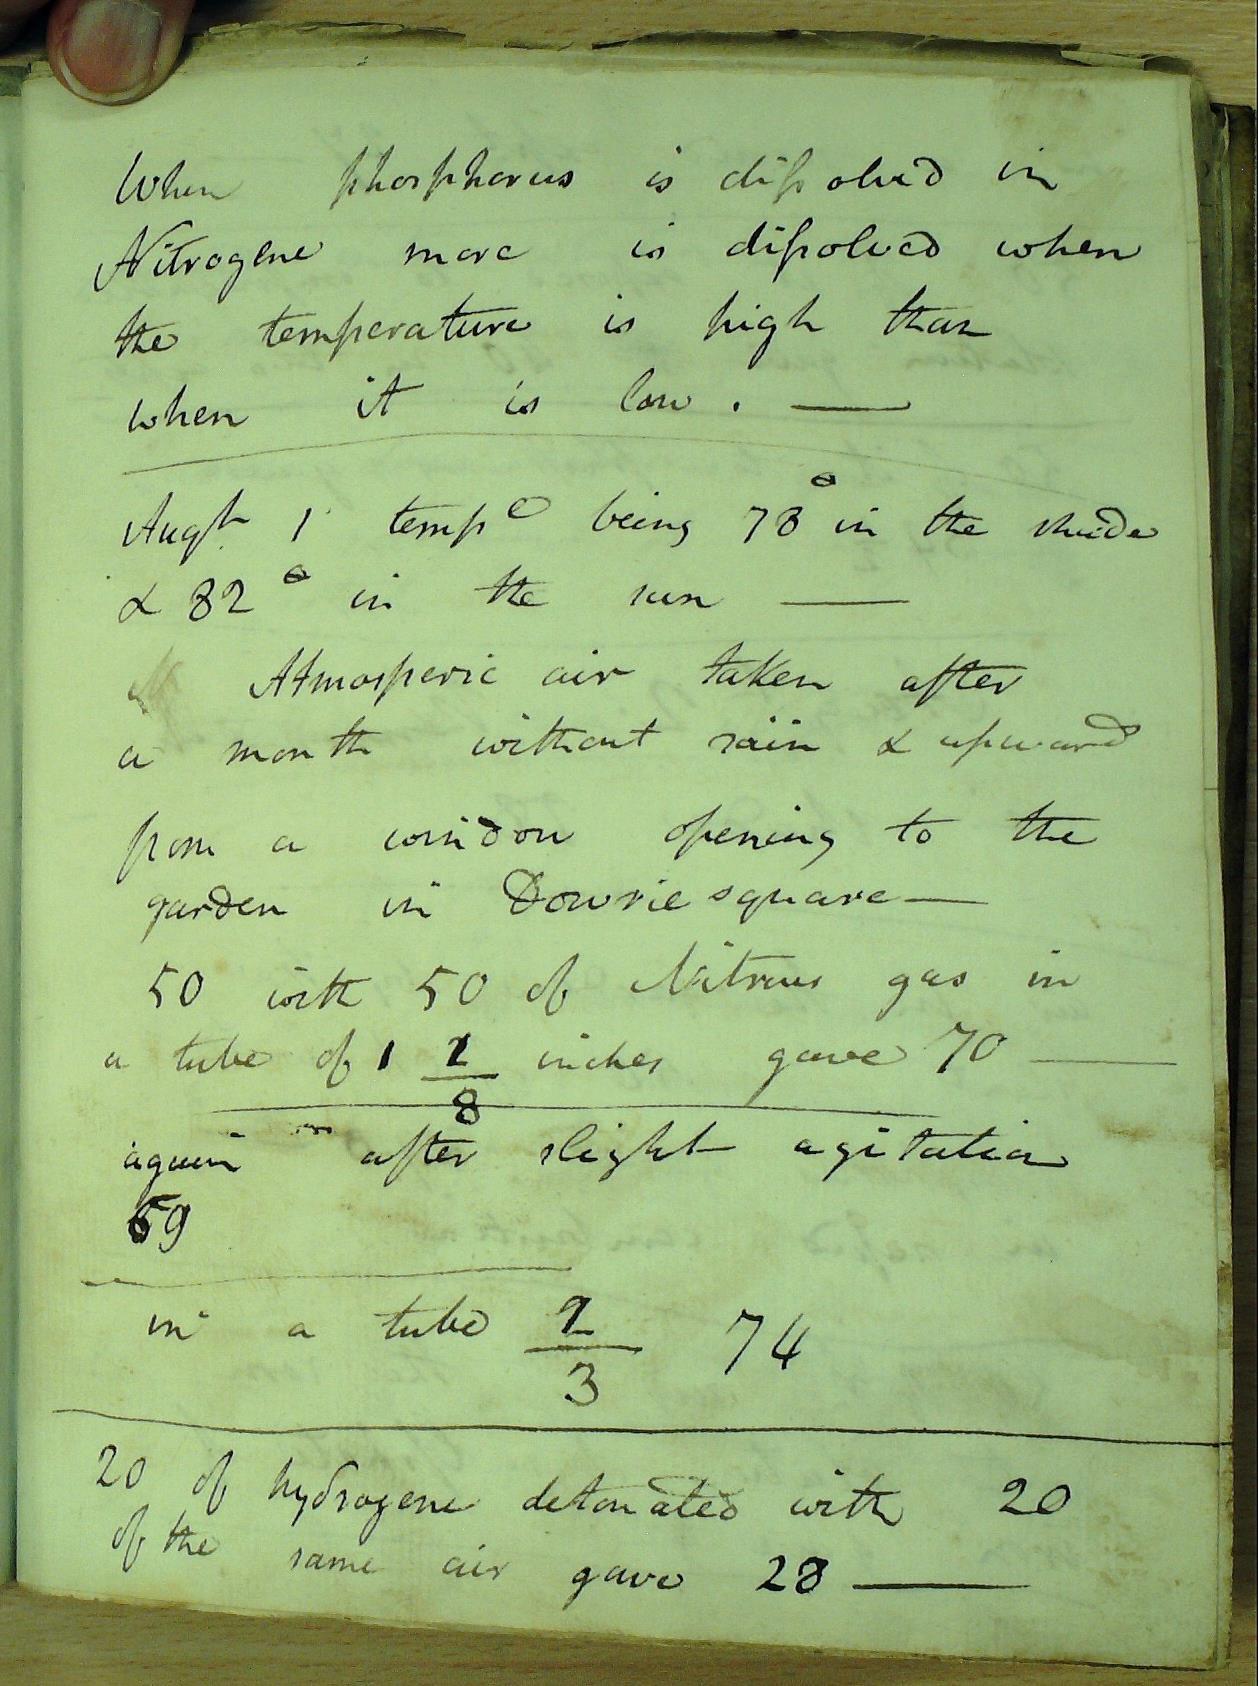 When phosphorus is dissolved in
Nitrogene more is dissolved when
the temperature is high than
when it is low . —
Augt 1 tempe being 78° in the shade
& 82° in the sun —
Atmosperic air taken after
a month without rain & upward
from a window opening to the
garden in Dowrie square —
50 with 50 of Nitrous gas in
a tube of 1 1/8 inches gave 70 —
again after slight agitation
69
in a tube 2/3 74
20 of hydrogene detonated with 20
of the same air gave 28 —